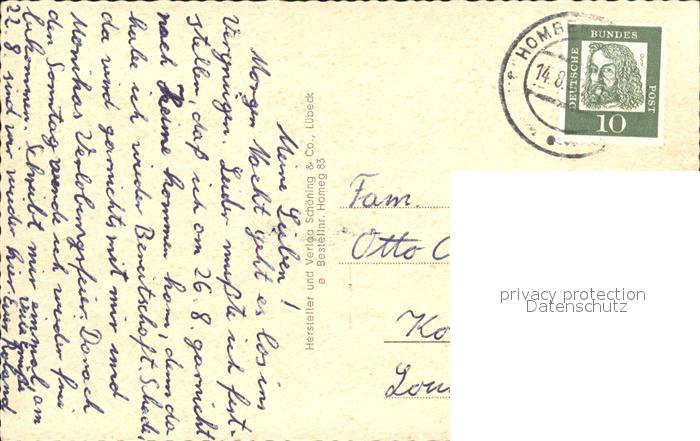 Meine Lieben!
Morgen Nacht geht es los ins
Vergnügen. Leider mußte ich fest-
stellen, daß ich am 26.8. garnicht
nach Heine kommen kann, denn da
habe ich wieder Bereitschaft. Schade,
da wird garnichts mit mir und
Monikas Verlobungsfeier. Danach
den Sonntag werde ich wieder frei
bekommen. Schreibt mir einmal, am
22.8 sind wir wieder hier.
Viele Grüße
Euer Roland
Hersteller und Verlag Schöning & Co., Lübeck
e Bestellnr. Homeg 83
HOMBE
14.8.
DEUTSCHE BUNDES POST
10
Fam.
Otto
privacy protection
Datenschutz